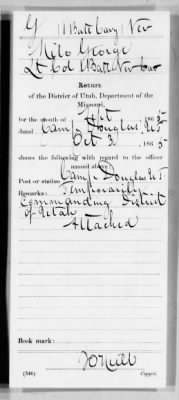 G 11 Batt Cavy Nev
Milo George
Lt Col 1 Batt Nev Cav
RETURN
of the District of Utah, Department of the
Missouri,
for the month of Sept, 1865
dated Camp Douglas, U.T.
Oct 3, 1865
shows the following with regard to the officer
named above:
Post or station: Camp Douglas U.T.
Remarks: Temporarily
Commanding District
of Utah
Attached
Book mark:
(546) Copyist.